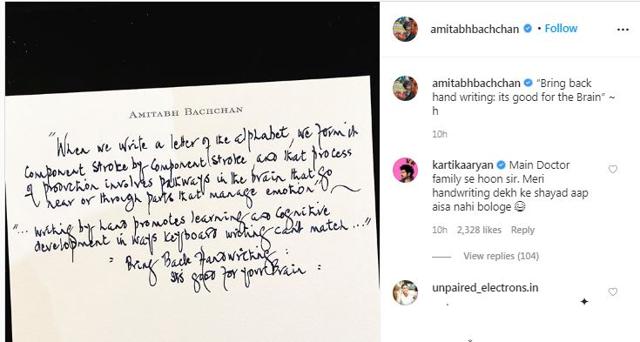 AMITABH BACHCHAN
"When we write a letter of the alphabet, we form it
component stroke by component stroke and that process
of production involves pathways in the brain that go
near or through parts that manage emotion"
"... writing by hand promotes learning and cognitive
development in ways keyboard writing can't match ..."
Bring Back Handwriting:
its good for your Brain :
amitabhbachchan • Follow
amitabhbachchan "Bring back
hand writing: its good for the Brain" ~
h
10h
kartikaaryan Main Doctor
family se hoon sir. Meri
handwriting dekh ke shayad aap
aisa nahi bologe 😅
10h 2,328 likes Reply
View replies (104)
unpaired_electrons.in